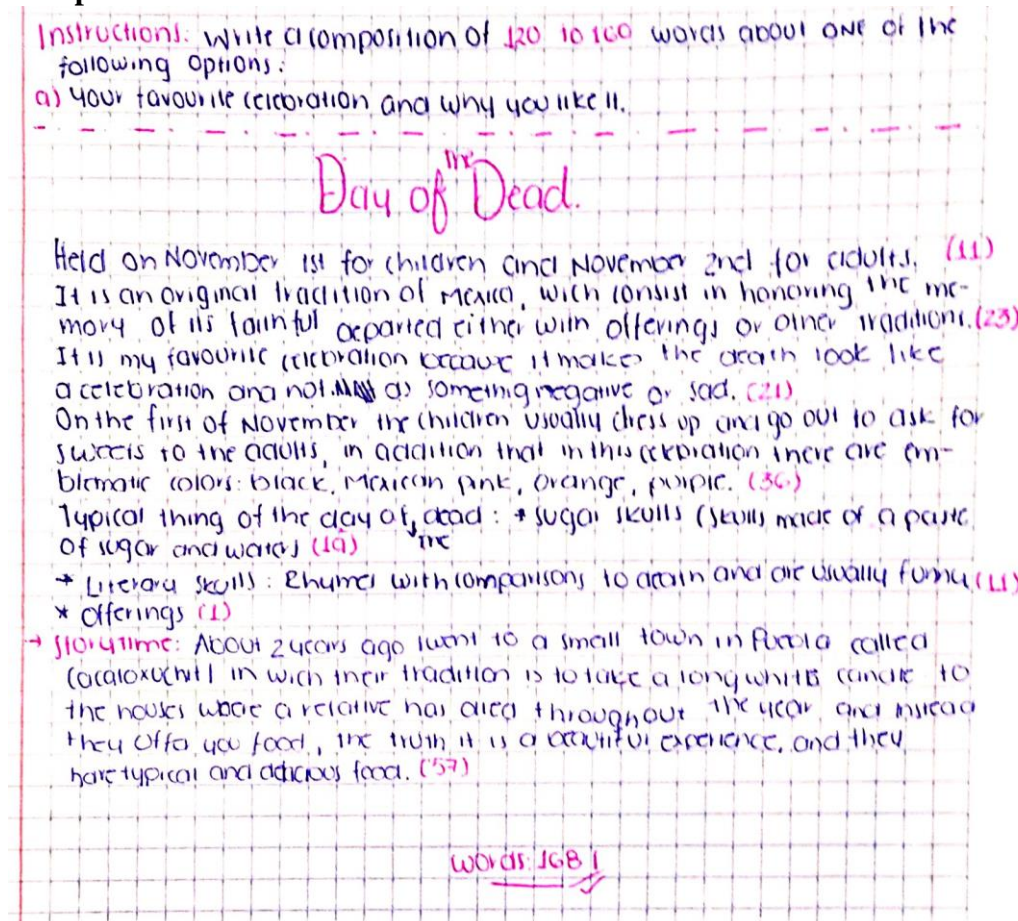 Instructions: Write a composition of 120 to 160 words about ONE of the
following options:
a) Your favourite celebration and why you like it.
Day of the Dead.
Held on November 1st for children and November 2nd for adults. (11)
It is an original tradition of Mexico, wich consist in honoring the me-
mory of its faithful departed either with offerings or other traditions. (23)
It is my favourite celebration because it makes the death look like
a celebration and not as somethig negative or sad. (21)
On the first of November the children usually dress up and go out to ask for
sweets to the adults, in addition that in this celebration there are em-
blematic colors: black, Mexican pink, orange, purple. (36)
Typical thing of the day of the dead: * sugar skulls (skulls made of a paste
of sugar and water) (19)
* Literary skulls: Rhymes with comparisons to death and are usually funny (11)
* Offerings (1)
→ Storytime: About 2 years ago I went to a small town in Puebla called
Cacaloxuchitl in wich their tradition is to take a long white candle to
the houses where a relative has died throughout the year and instead
they offer you food, the truth it is a beautiful experience, and they
have typical and delicious food. (57)
words: 168